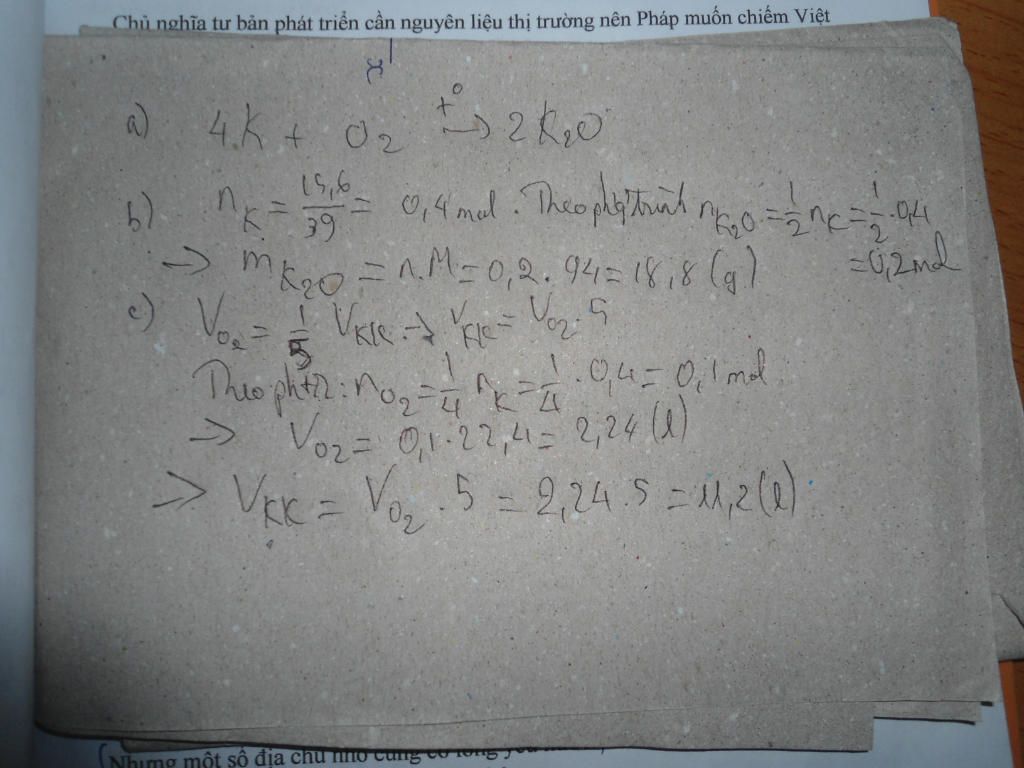 Chủ nghĩa tư bản phát triển cần nguyên liệu thị trường nên Pháp muốn chiếm Việt
a) 4K + O2 t° → 2K2O
b) nK = 15,6/39 = 0,4 mol. Theo phg trình nK2O = 1/2 nK = 1/2 . 0,4
= 0,2 mol
→ mK2O = n.M = 0,2 . 94 = 18,8 (g)
c) VO2 = 1/5 VKK → VKK = VO2 . 5
Theo : nO2 = 1/4 nK = 1/4 . 0,4 = 0,1 mol
→ VO2 = 0,1 . 22,4 = 2,24 (l)
→ VKK = VO2 . 5 = 2,24 . 5 = 11,2 (l)
Nhưng một số địa chủ nhỏ cũng có lòng yêu